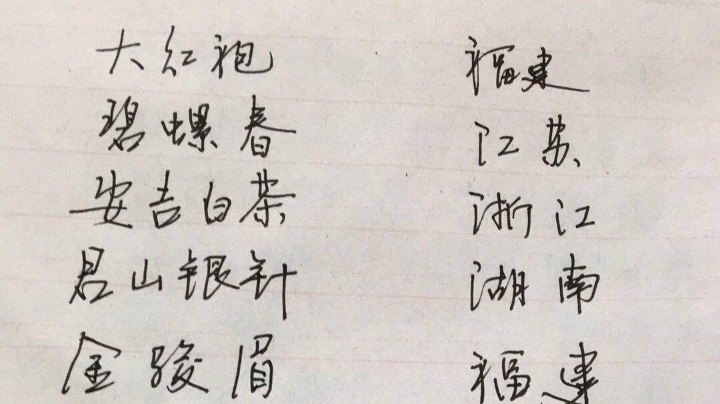 大红袍 福建
碧螺春 江苏
安吉白茶 浙江
君山银针 湖南
金骏眉 福建